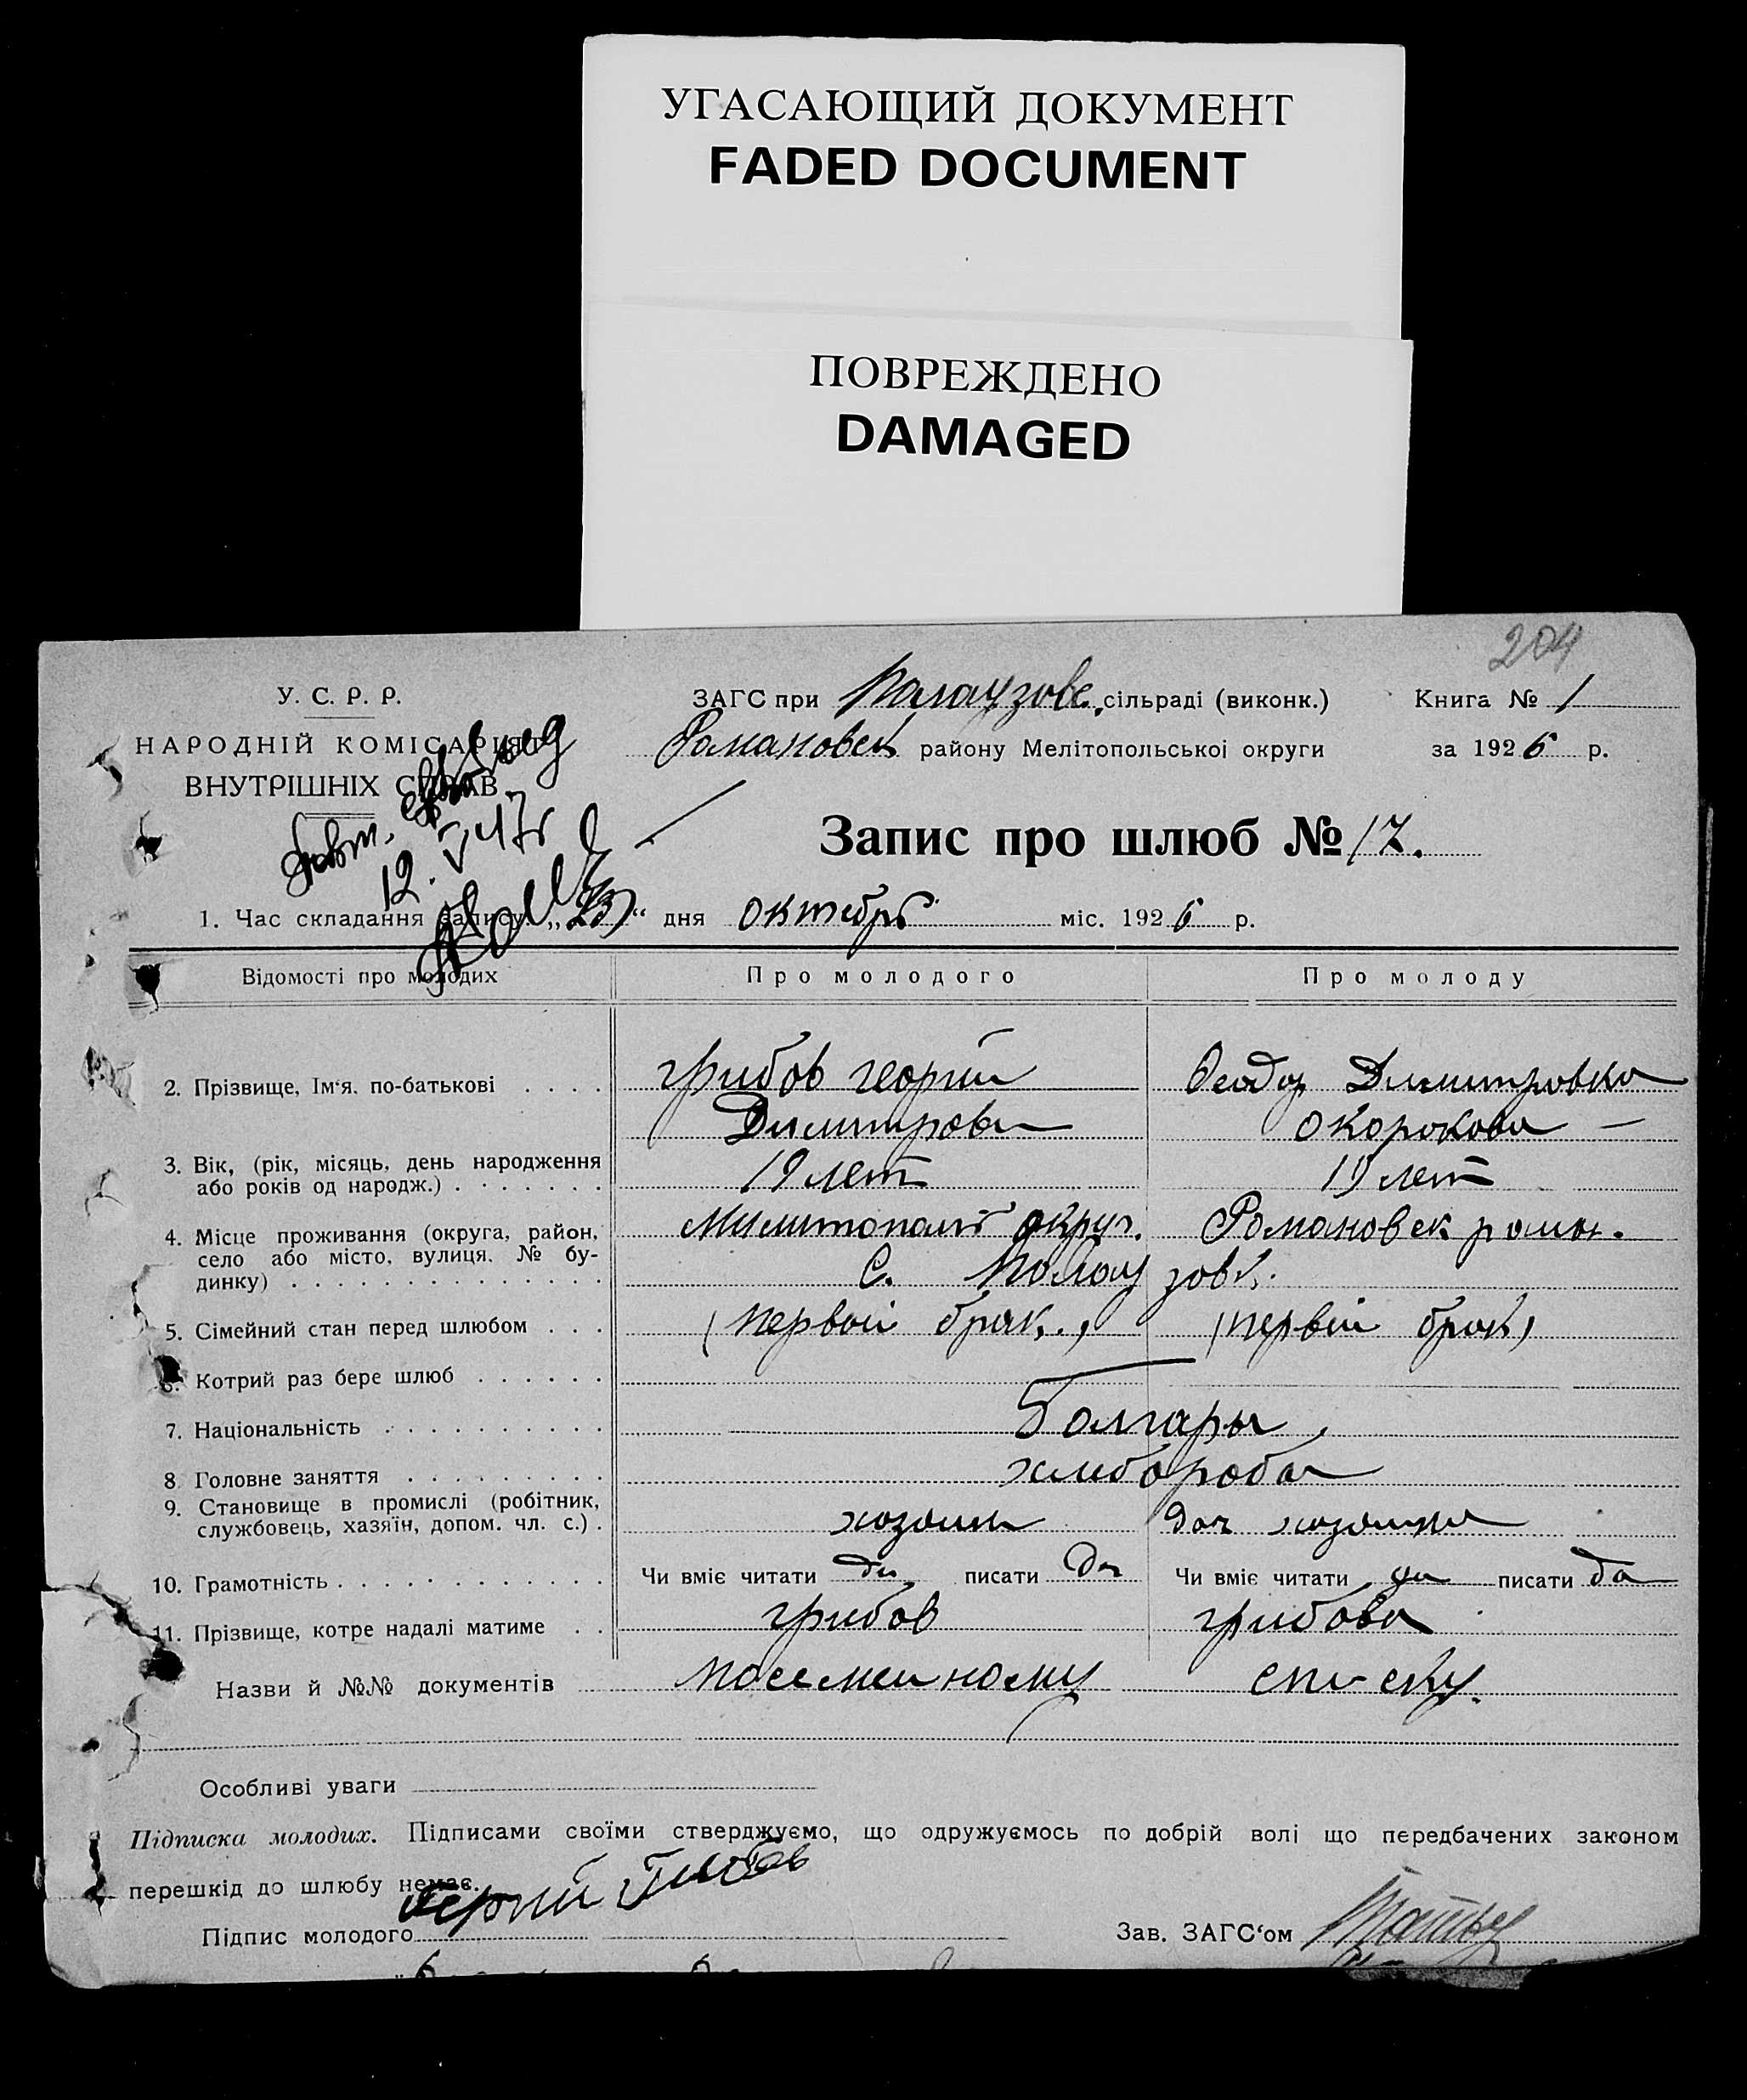 УГАСАЮЩИЙ ДОКУМЕНТ
FADED DOCUMENT
ПОВРЕЖДЕНО
DAMAGED
204
У. С. Р. Р.
НАРОДНІЙ КОМІСАРІЯТ
ВНУТРІШНІХ СПРАВ
Повт.
12. V 47г
ЗАГС при сільраді (виконк.) Книга № 1
Романовск району Мелітопольської округи за 1926 р.
Запис про шлюб № 17.
1. Час складання запису: „23“ дня октебр міс. 1926 р.
Відомості про молодих Про молодого Про молоду
2. Прізвище, Ім'я. по-батькові грибов георгий
Димитрови
Димитровна
окорокова —
3. Вік, (рік, місяць, день народження
або років од народж.) 19 лет 19 лет
4. Місце проживання (округа, район,
село або місто, вулиця. № бу-
динку)
Милитопольт округ. Романовск район.
С.
5. Сімейний стан перед шлюбом (первой брак.) (первый брак)
6. Котрий раз бере шлюб
7. Національність Болгары
8. Головне заняття хлебороба
9. Становище в промислі (робітник,
службовець, хазяїн, допом. чл. с.) хозяин доч хозяина
10. Грамотність Чи вміє читати да писати Да Чи вміє читати да писати да
11. Прізвище, котре надалі матиме грибов грибова
Назви й №№ документів посемейному списку.
Особливі уваги
Підписка молодих. Підписами своїми стверджуємо, що одружуємось по добрій волі що передбачених законом
перешкід до шлюбу немає.
Підпис молодого Зав. ЗАГС'ом